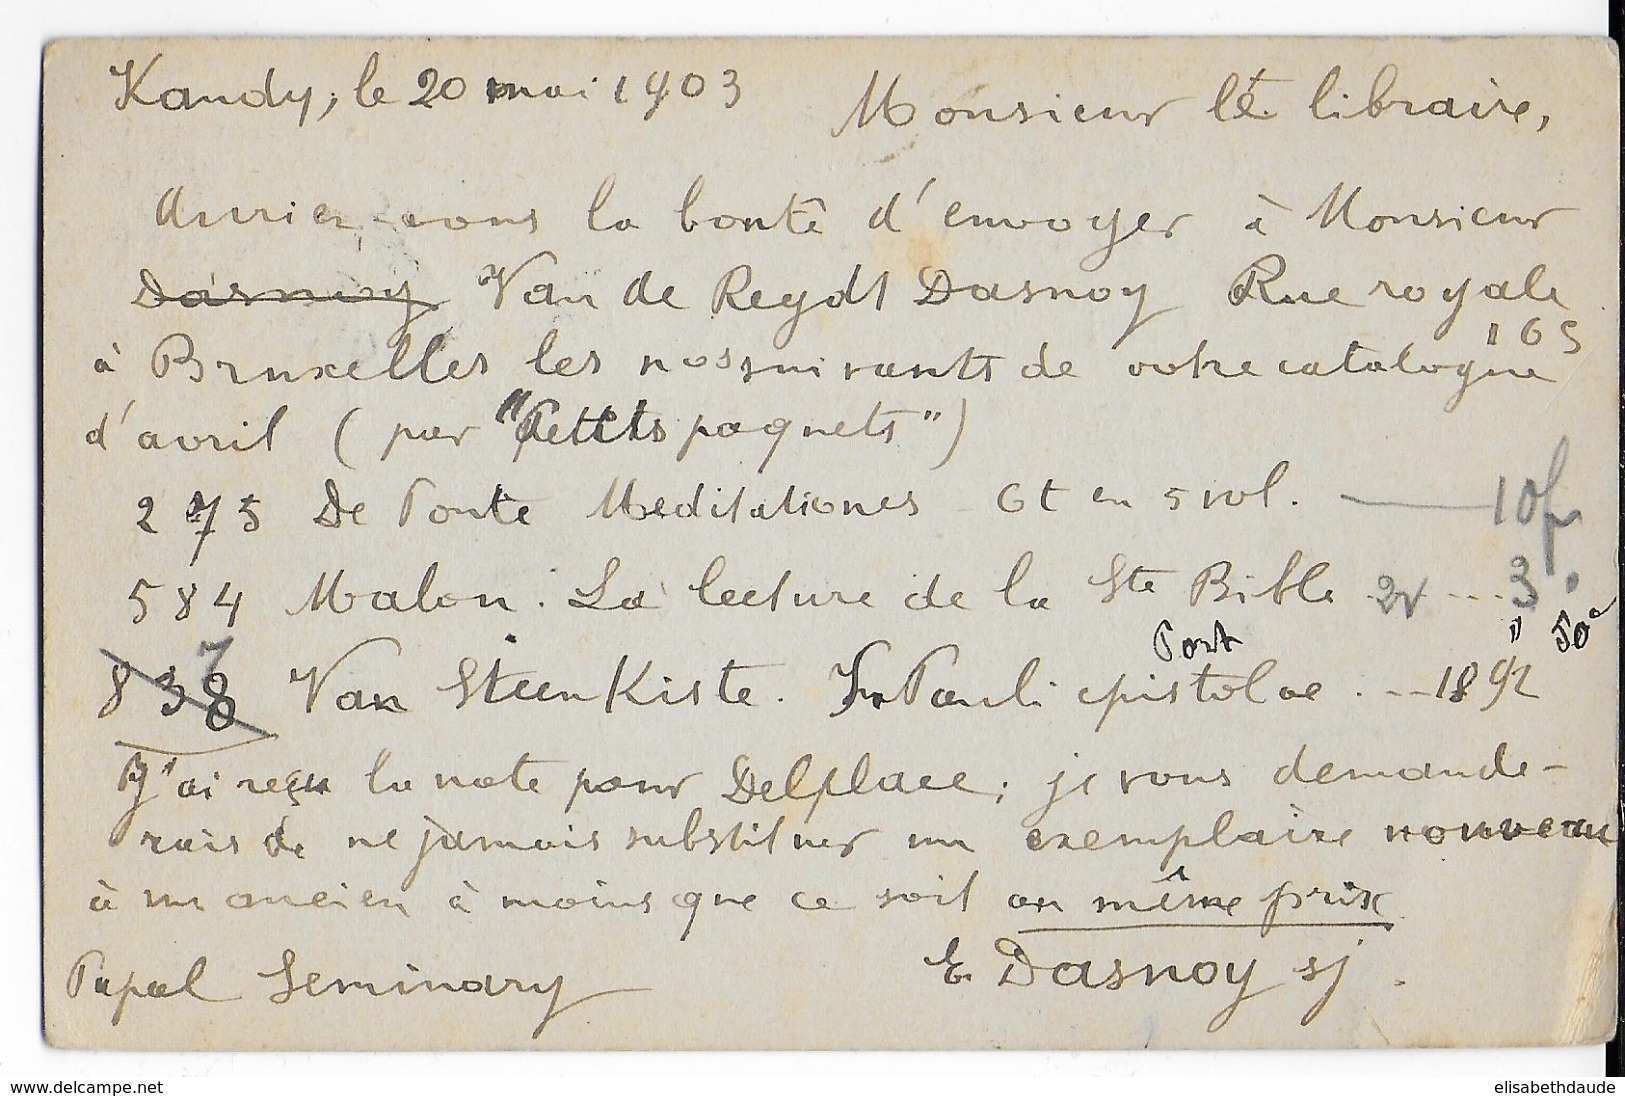 Kandy, le 20 mai 1903
Monsieur le libraire,
Auriez-vous la bonté d'envoyer à Monsieur
Dasnoy Van de Reydt Dasnoy Rue royale
165
à Bruxelles les nos suivants de votre catalogue
d'avril (par "Petits paquets")
275 De Ponte Meditationes 6t en 5 vol. — 10 fr
584 Malou. La lecture de la Ste Bible 2v ... 3.
Port " 50c
7
838 Van Steenkiste. In Pauli epistolae ... 1892
J'ai reçu la note pour Delplace; je vous demande-
rais de ne jamais substituer un exemplaire nouveau
à un ancien à moins que ce soit au même prix
Papal Seminary
E. Dasnoy sj.
www.delcampe.net
elisabethdaude